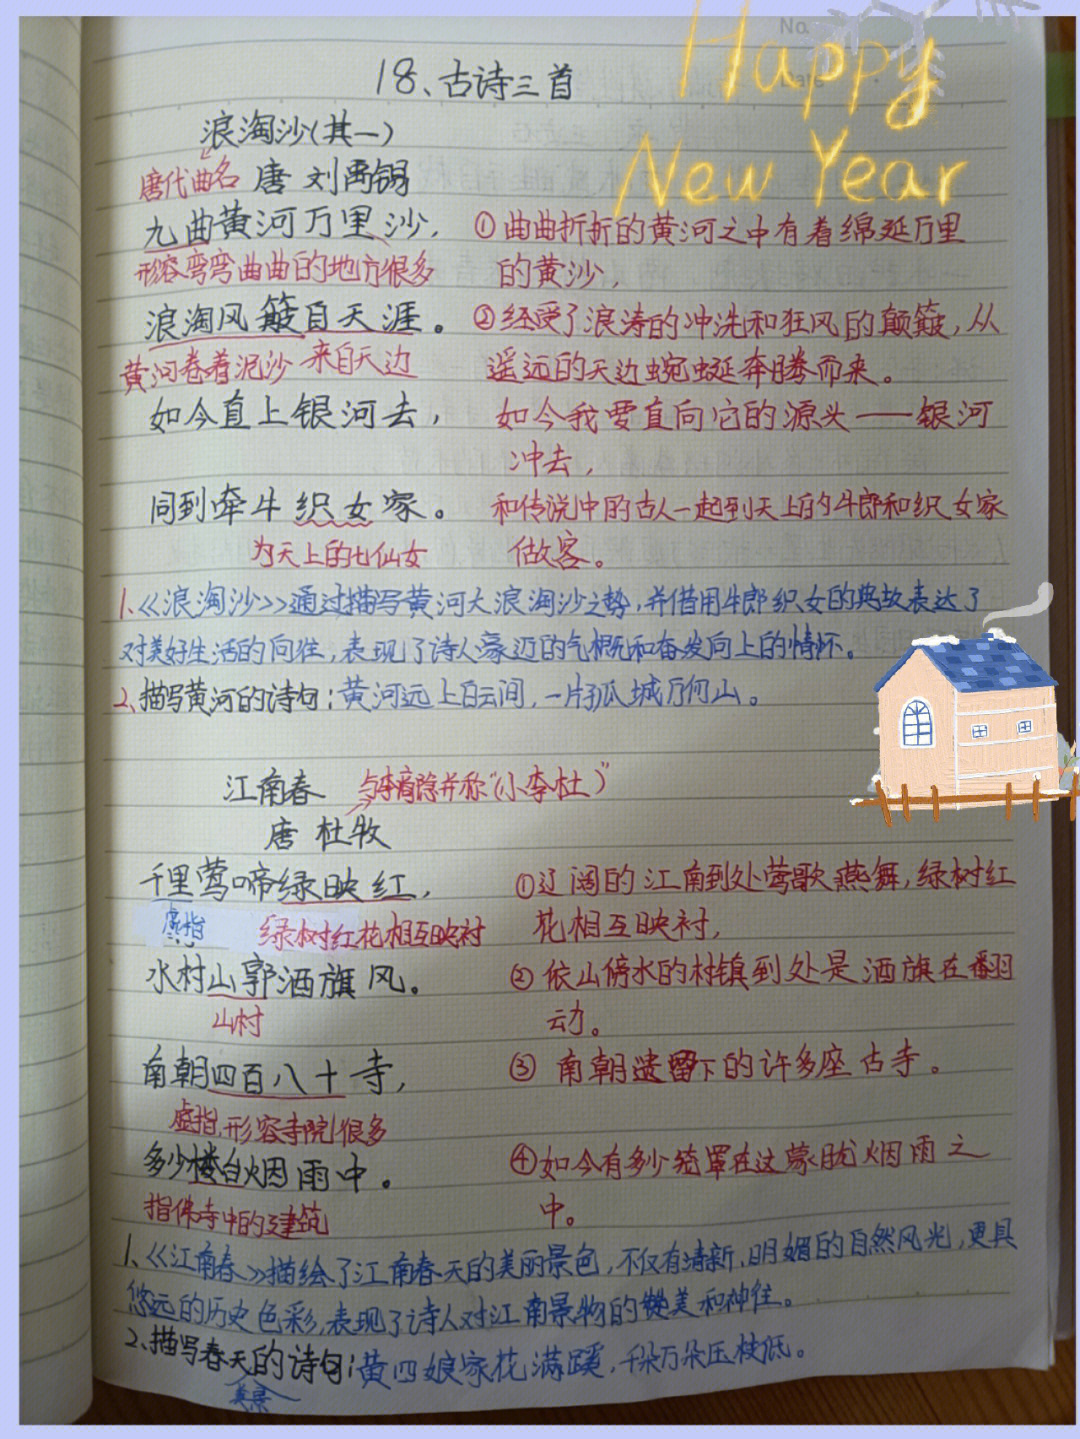 No.
Happy
New Year
18、古诗三首
浪淘沙(其一)
唐代曲名 唐 刘禹锡
九曲黄河万里沙, ①曲曲折折的黄河之中有着绵延万里
形容弯弯曲曲的地方很多 的黄沙,
浪淘风簸自天涯。 ②经受了浪涛的冲洗和狂风的颠簸,从
黄河卷着泥沙 来自天边 遥远的天边蜿蜒奔腾而来。
如今直上银河去, 如今我要直向它的源头——银河
冲去,
同到牵牛织女家。 和传说中的古人一起到天上的牛郎和织女家
为天上的七仙女 做客。
1、《浪淘沙》通过描写黄河大浪淘沙之势,并借用牛郎织女的典故表达了
对美好生活的向往,表现了诗人豪迈的气概和奋发向上的情怀。
2、描写黄河的诗句:黄河远上白云间,一片孤城万仞山。
江南春 与李商隐并称“(小李杜)”
唐 杜牧
千里莺啼绿映红, ①辽阔的江南到处莺歌燕舞,绿树红
虚指 绿树红花相互映衬 花相互映衬,
水村山郭酒旗风。 ②依山傍水的村镇到处是酒旗在翻
山村 动。
南朝四百八十寺, ③南朝遗留下的许多座古寺。
虚指,形容寺院很多
多少楼台烟雨中。 ④如今有多少笼罩在这蒙胧烟雨之
指佛寺中的建筑 中。
1、《江南春》描绘了江南春天的美丽景色,不仅有清新、明媚的自然风光,更具
悠远的历史色彩,表现了诗人对江南景物的赞美和神往。
2、描写春天的诗句:黄四娘家花满蹊,千朵万朵压枝低。
美景